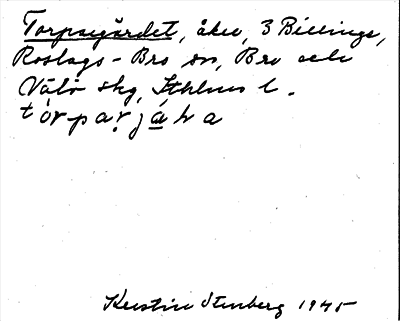 Torpargärdet, åker, 3 Billinge,
Roslags-Bro sn, Bro och
Vätö skg, Sthlms l.
tórparjäḷa
Kerstin Stenberg 1945